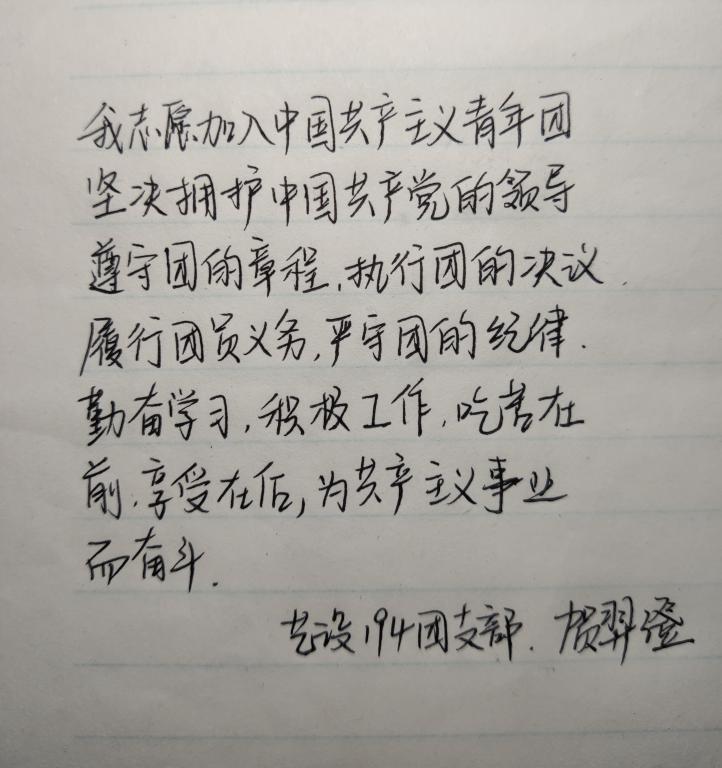 我志愿加入中国共产主义青年团
坚决拥护中国共产党的领导
遵守团的章程,执行团的决议.
履行团员义务,严守团的纪律.
勤奋学习,积极工作,吃苦在
前,享受在后,为共产主义事业
而奋斗.
艺设194团支部. 贺羿